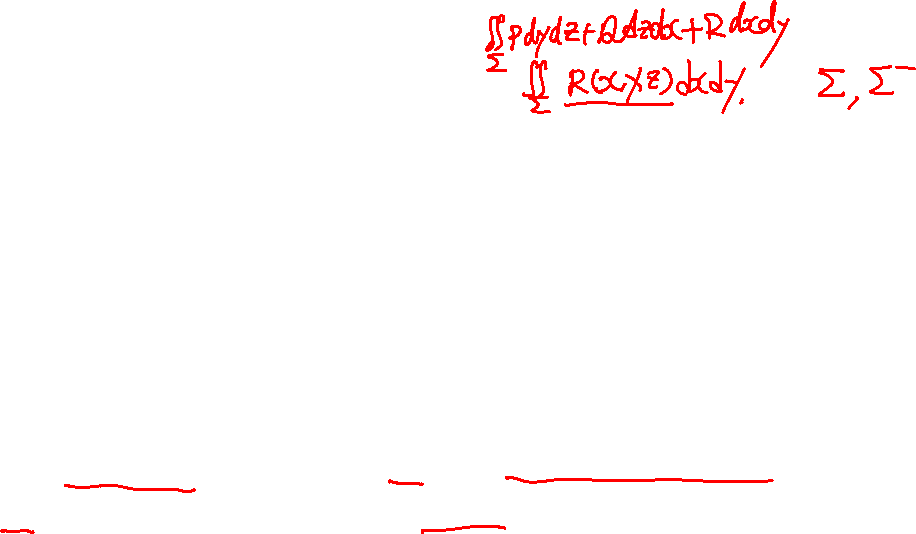 ∬_Σ Pdydz+Qdzdx+Rdxdy
∬_Σ R(x,y,z)dxdy. Σ, Σ⁻